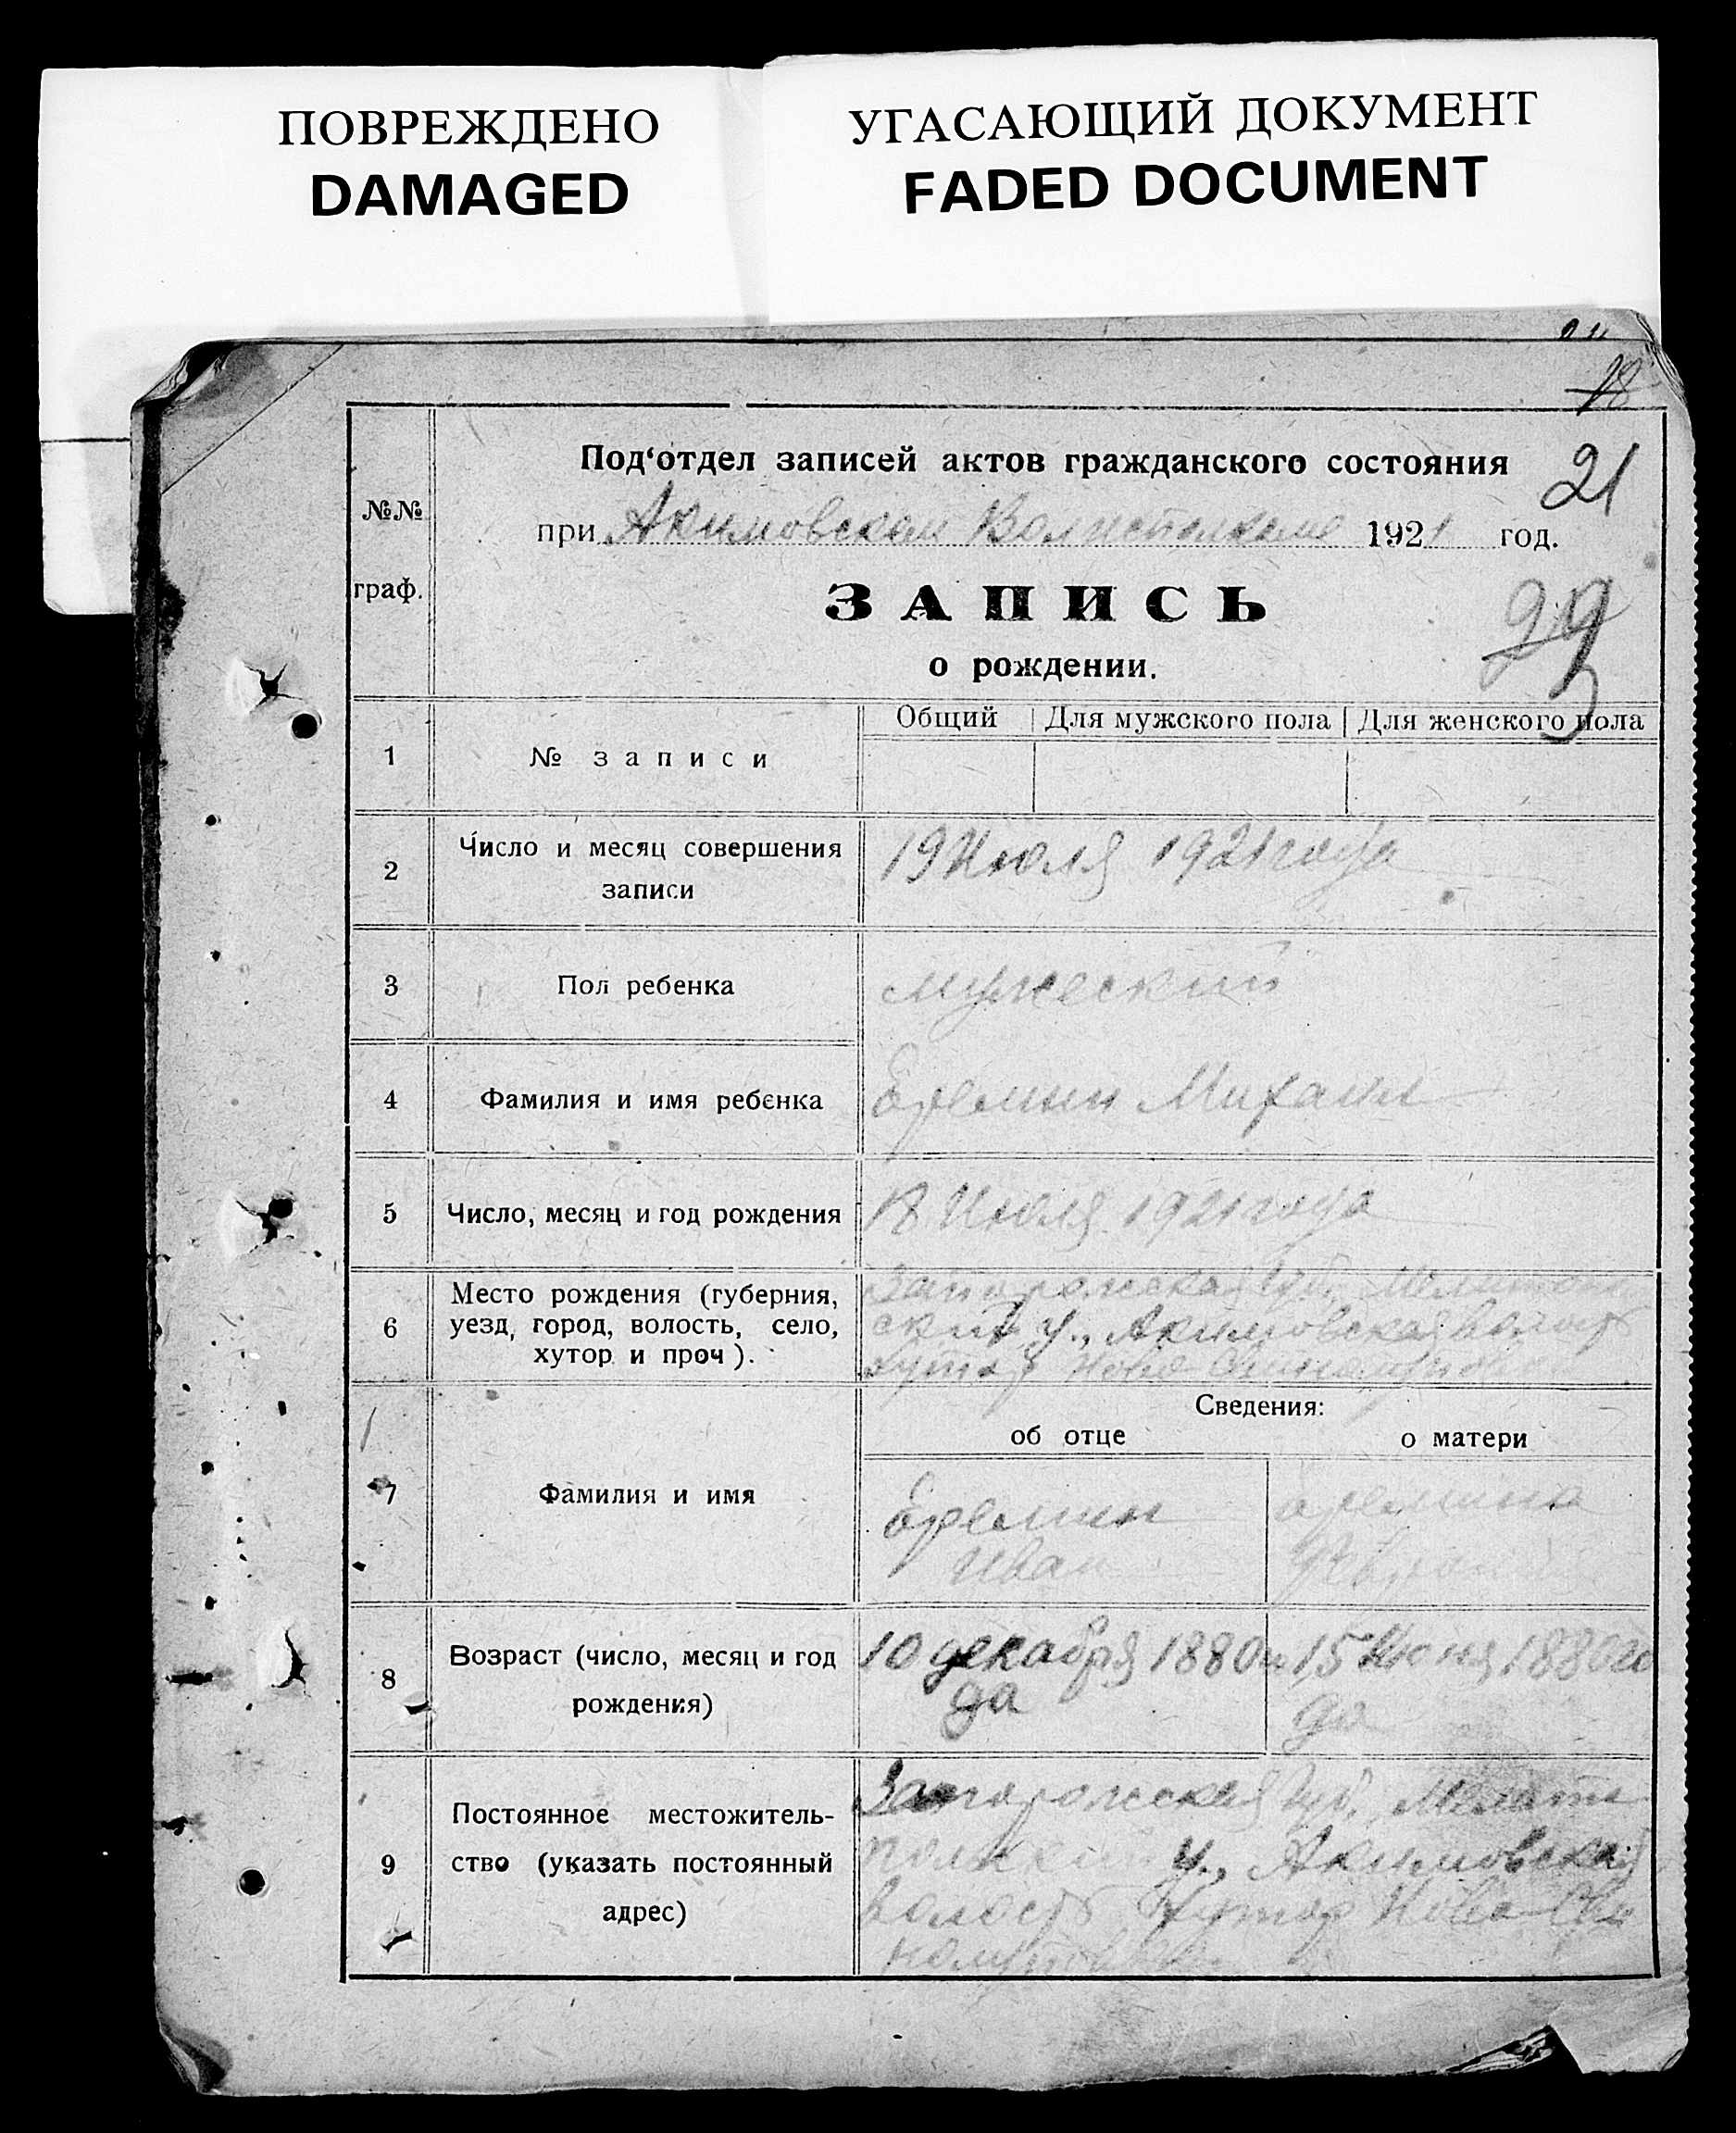 ПОВРЕЖДЕНО
DAMAGED
УГАСАЮЩИЙ ДОКУМЕНТ
FADED DOCUMENT
18
21
№№
граф.
Под‘отдел записей актов гражданского состояния
при Акимовском 1921 год.
ЗАПИСЬ
о рождении.
Общий Для мужского пола Для женского пола
1 № записи
2 Число и месяц совершения
записи
19 Июля 1921 года
3 Пол ребенка мужеский
4 Фамилия и имя ребенка Еремин Михаил
5 Число, месяц и год рождения 18 Июля 1921 года
6 Место рождения (губерния,
уезд, город, волость, село,
хутор и проч).
Запорожская Губ. Мелитополь
ский у., Акимовская волость
хутор Ново
Сведения:
об отце о матери
7 Фамилия и имя
Еремин
Иван
Еремина
8 Возраст (число, месяц и год
рождения)
10 декабря 1880 го
да
15 Июня 1880 го
да
9 Постоянное местожитель-
ство (указать постоянный
адрес)
Запорожская Губ. Мелито
польский у., Акимовская
волость Хутор Ново